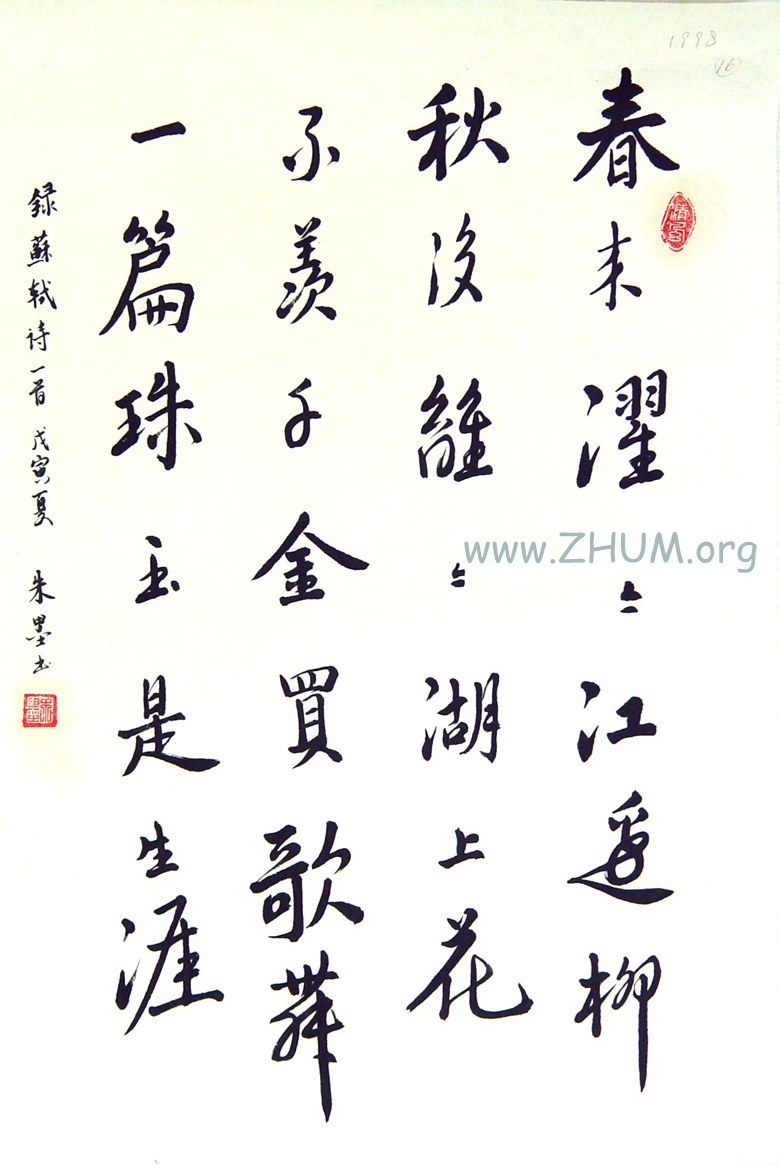 1998
16
春来濯〻江邊柳
秋後離〻湖上花
不羡千金買歌舞
一篇珠玉是生涯
録蘇軾诗一首 戊寅夏 朱墨书
www.ZHUM.org